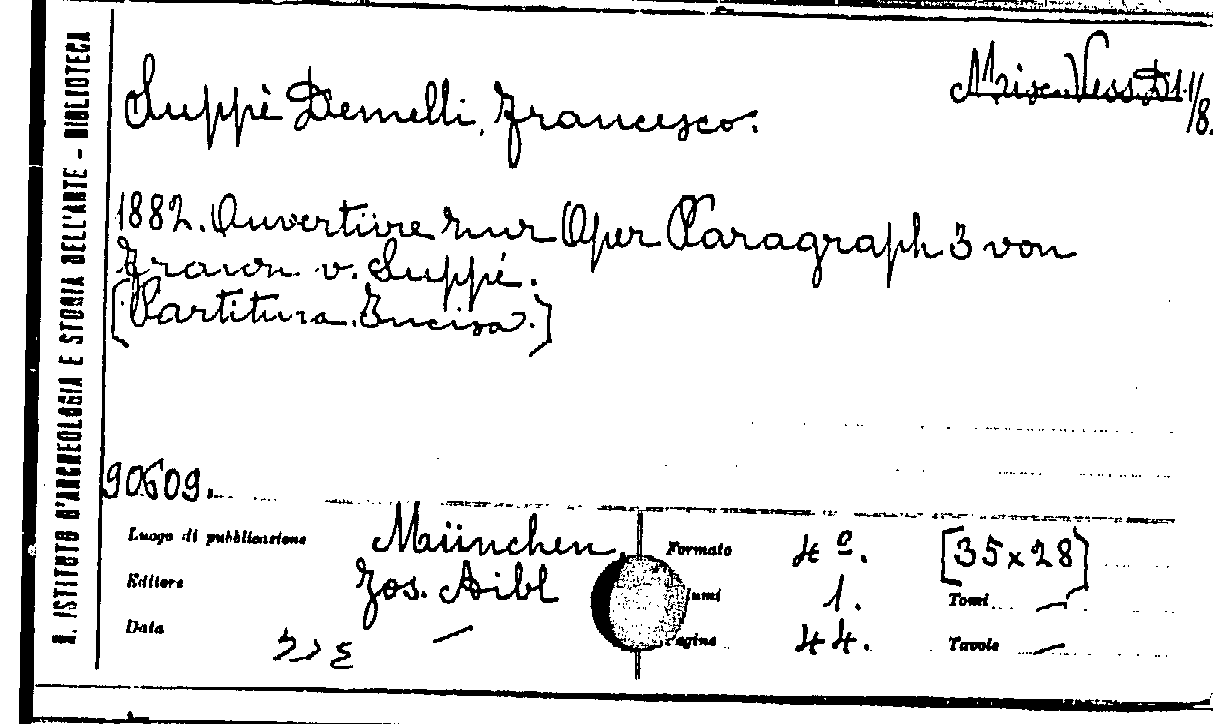 R. ISTITUTO D'ARCHEOLOGIA E STORIA DELL'ARTE - BIBLIOTECA
Suppè Demelli, Francesco.
Misc. Vess. D1.1/8.
1882. Ouvertüre zur Oper Paragraph 3 von
Franz v. Suppé.
[Partitura. Incisa.]
90609.
Luogo di pubblicazione München, Formato 4º. [35x28]
Editore Jos. Aibl lumi 1. Tomi —
Data — Pagine 44. Tavole —